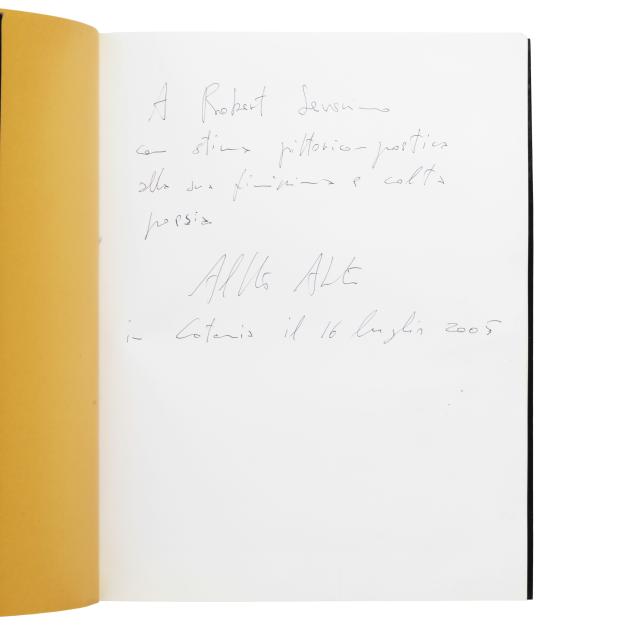 A Robert
con stima pittorico-poetica
alla sua finissima e colta
poesia
in Catania il 16 luglio 2005